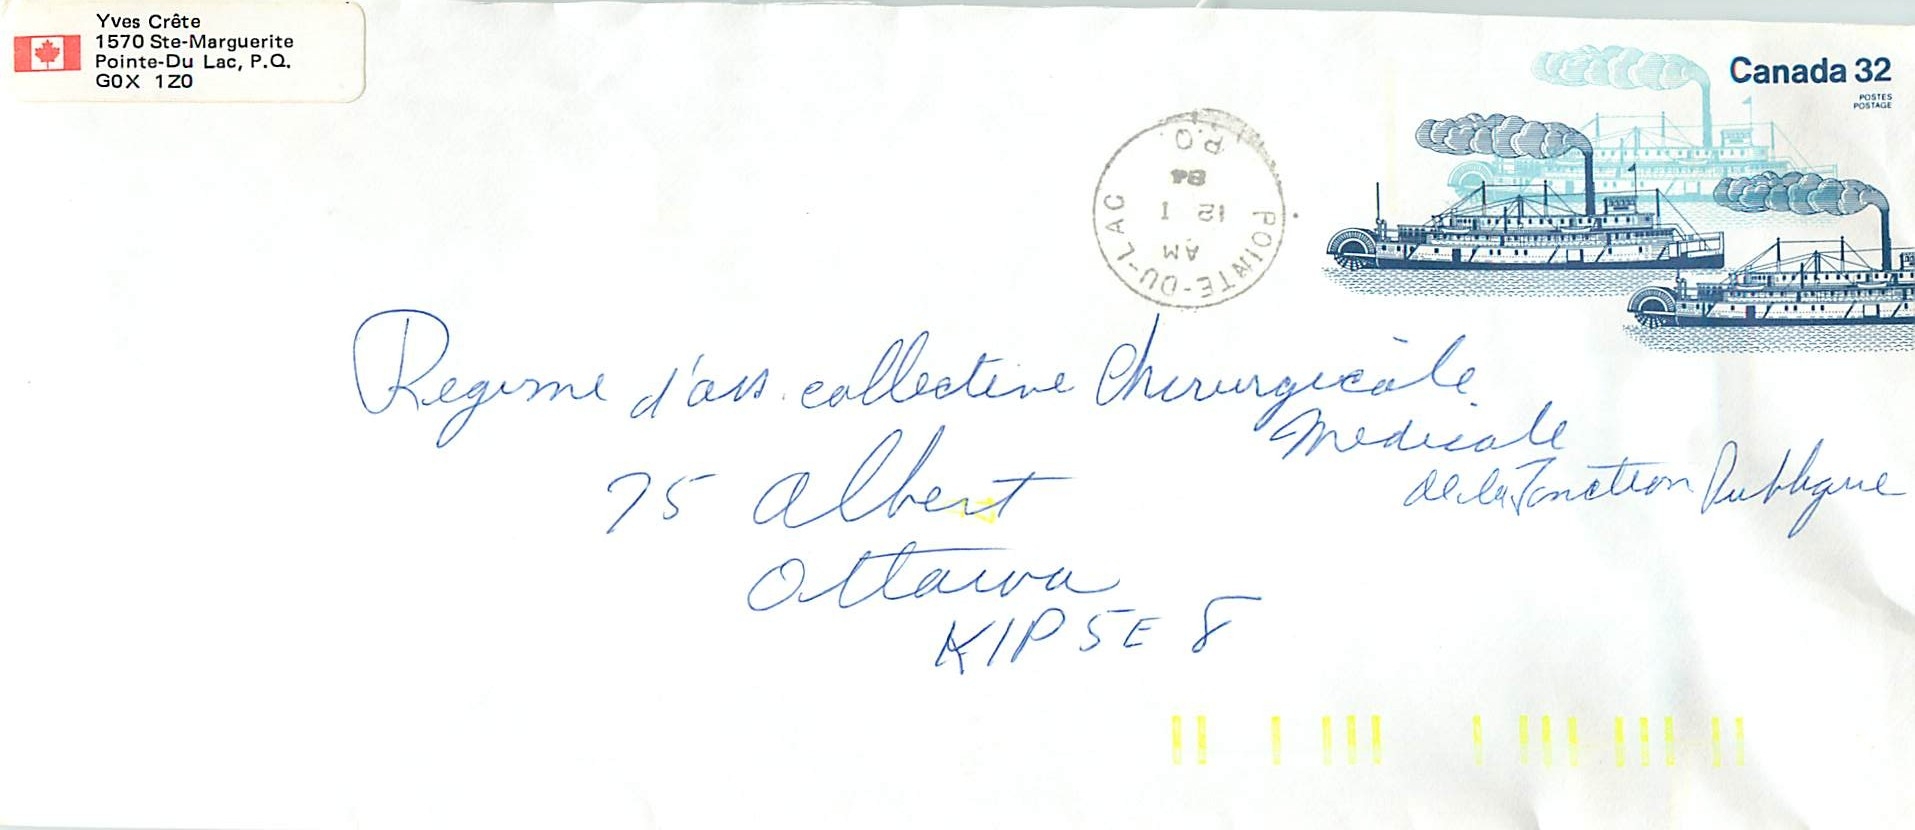 Yves Crête
1570 Ste-Marguerite
Pointe-Du Lac, P.Q.
G0X 1Z0
Canada 32
POSTES
POSTAGE
POINTE-DU-LAC
AM
12 I
84
P.Q.
Regime d'ass. collective Chirurgicale
Medicale
de la Fonction Publique
75 Albert
Ottawa
K1P 5E8